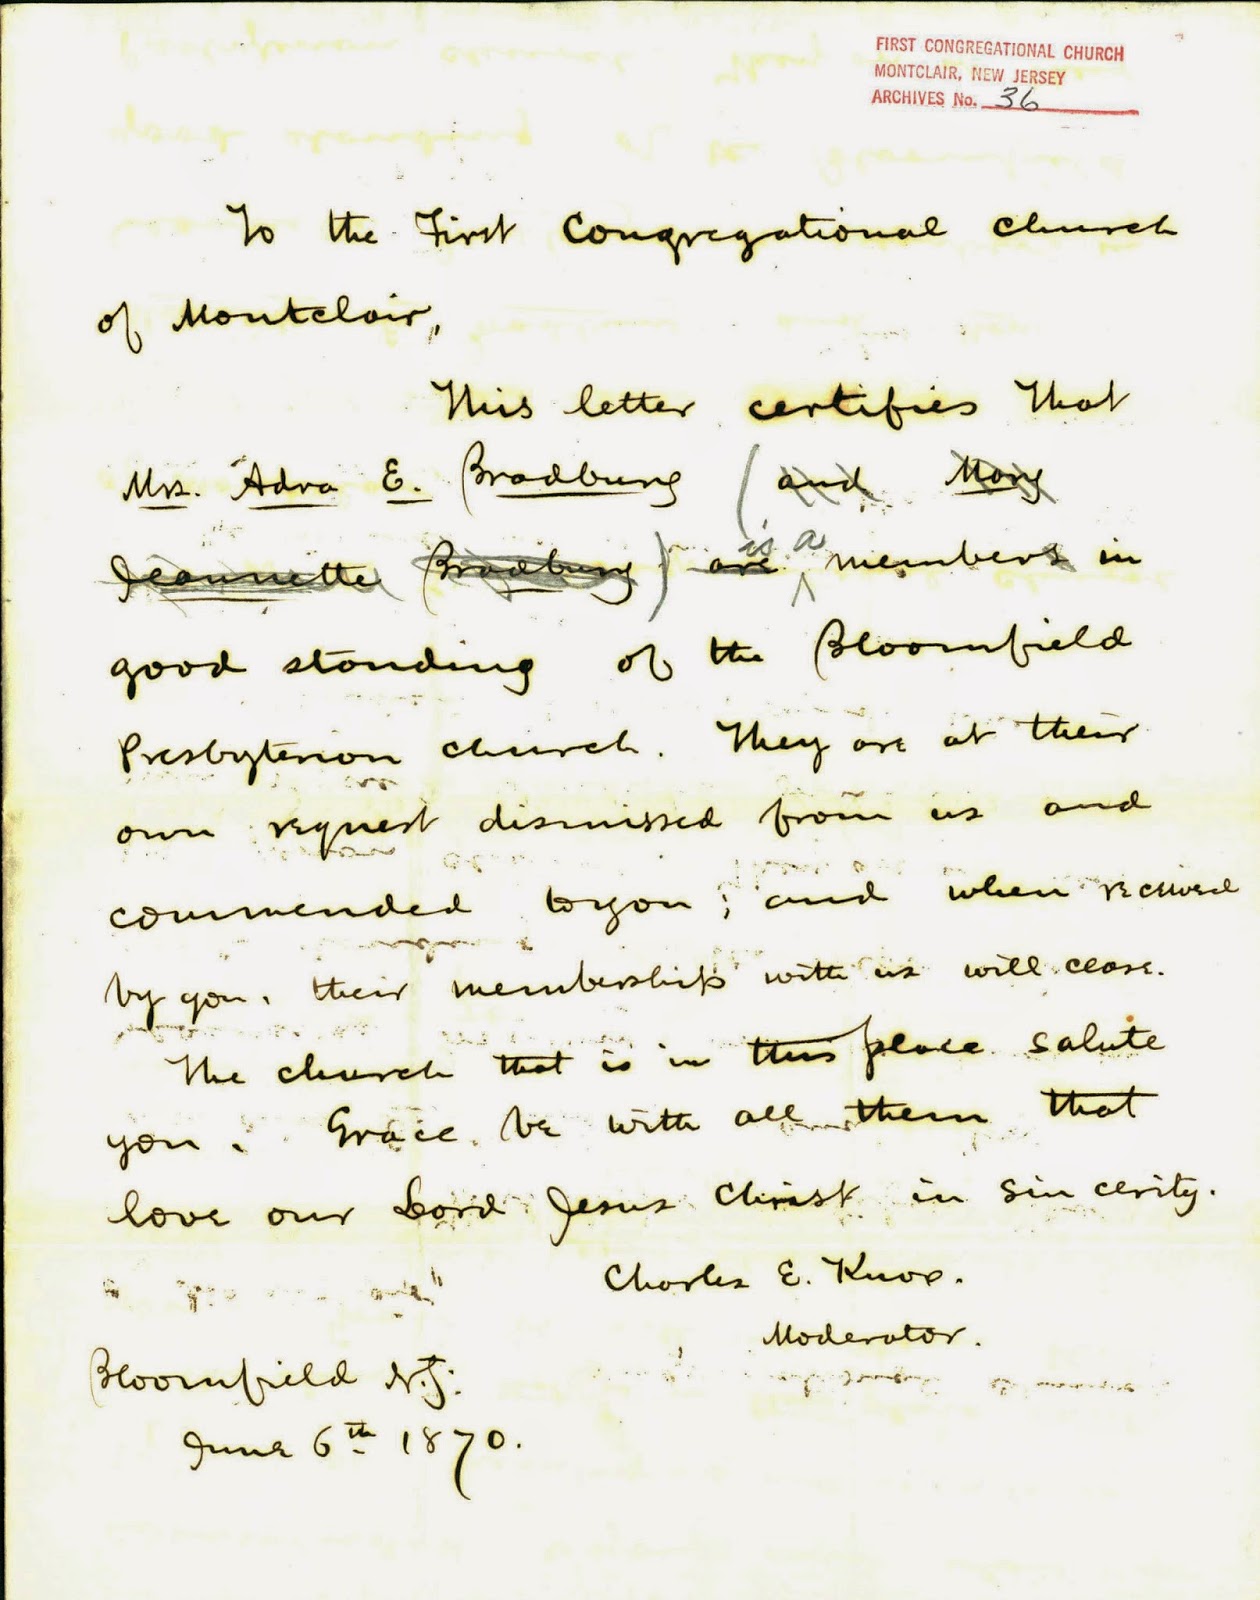 FIRST CONGREGATIONAL CHURCH
MONTCLAIR, NEW JERSEY
ARCHIVES No. 36
To the First Congregational church
of Montclair,
This letter certifies that
Mrs. Adra E. Bradbury (and Mary
Jeannette Bradbury) are is a members in
good standing of the Bloomfield
Presbyterian church. They are at their
own request dismissed from us and
commended to you; and when received
by you, their membership with us will cease.
The church that is in this place salute
you. Grace be with all them that
love our Lord Jesus Christ in sincerity.
Charles E. Knox.
Moderator.
Bloomfield N.J.
June 6th 1870.